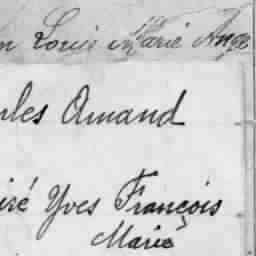 n Louis Marie Ange
rles Amand
iré Yves François
Marie